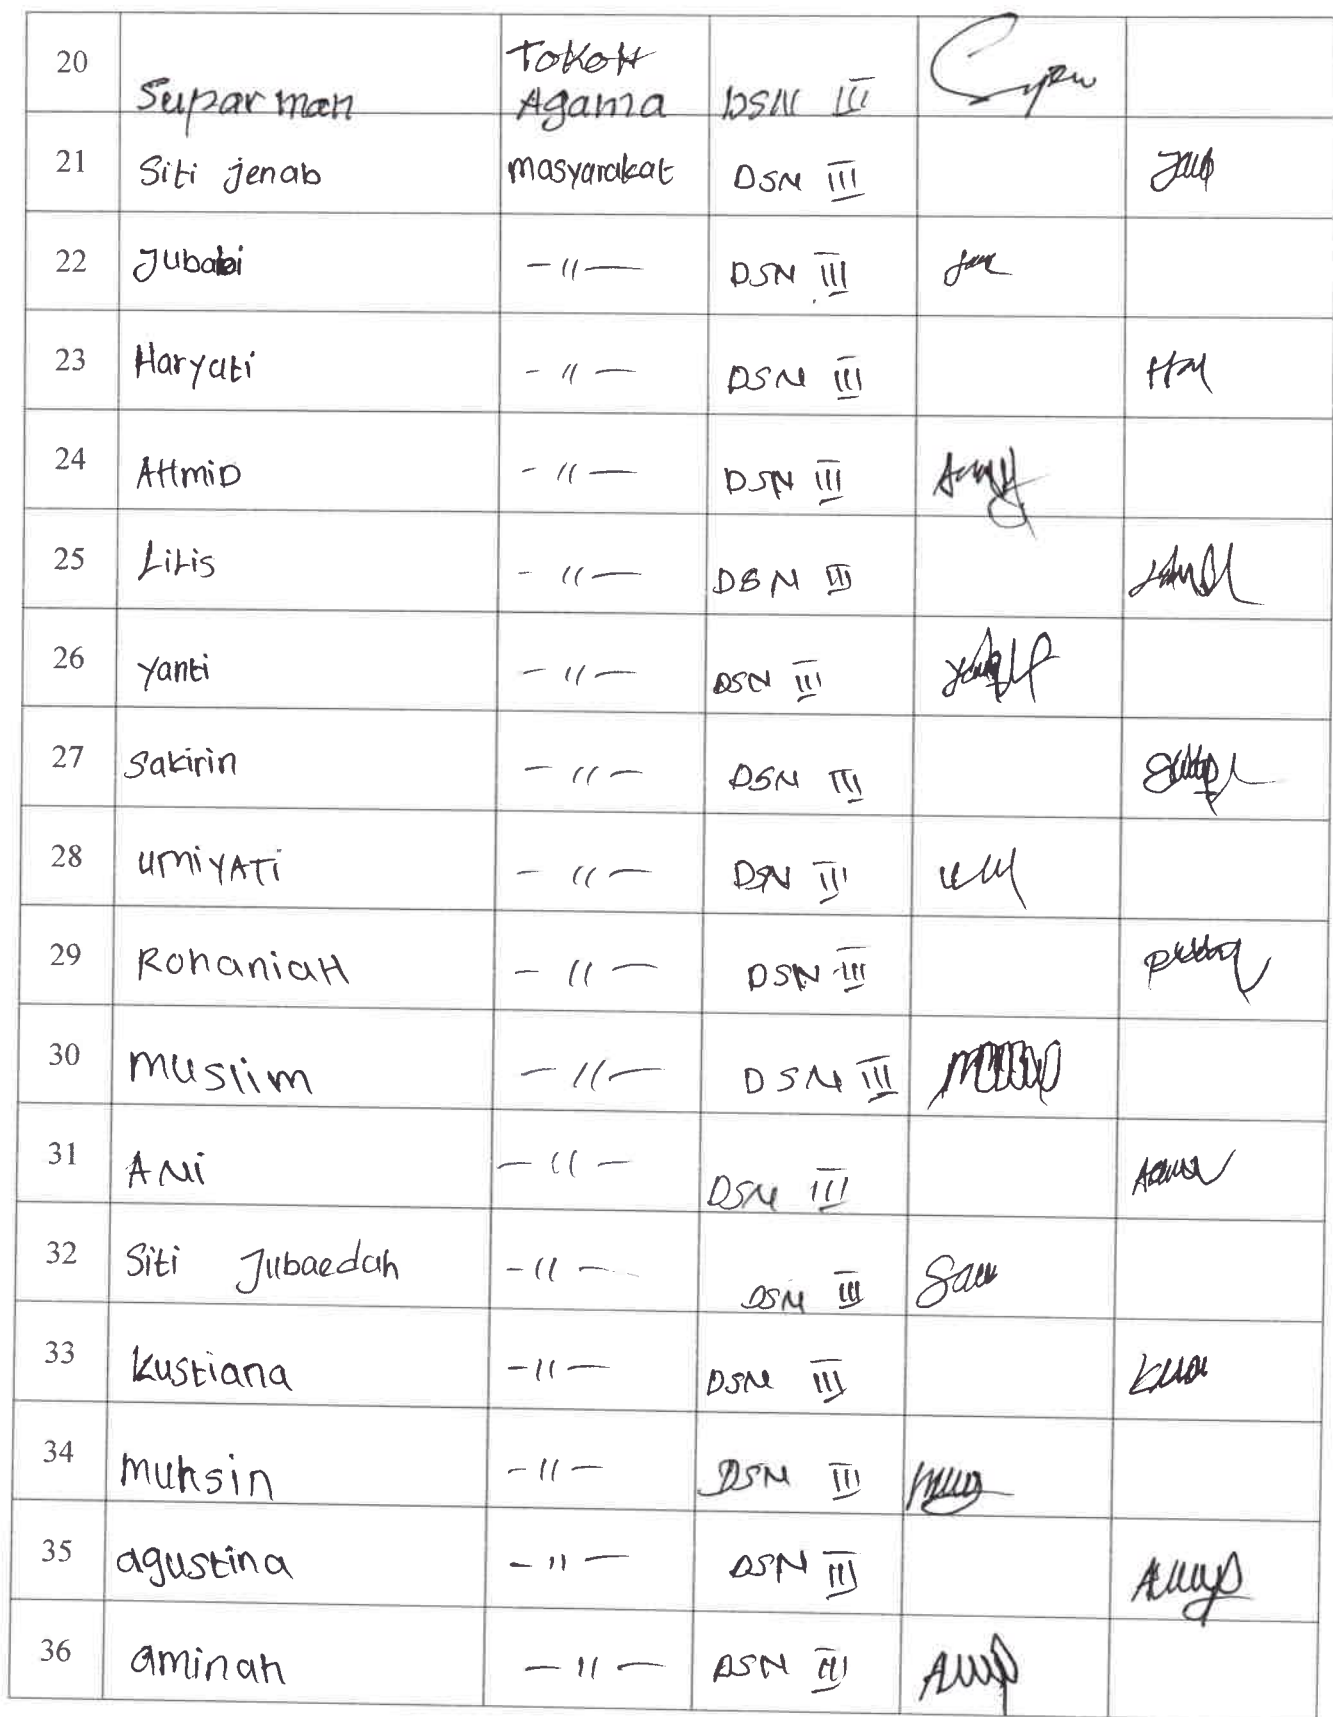 20 Suparman TOKOH Agama DSN III
21 Siti jenab masyarakat DSN III
22 Jubabi -〃- DSN III
23 Haryati -〃- DSN III
24 AHmiD -〃- DSN III
25 Lilis -〃- DSN III
26 Yanti -〃- DSN III
27 Sakirin -〃- DSN III
28 UmiYATi -〃- DSN III
29 RohaniaH -〃- DSN III
30 muslim -〃- DSN III
31 ANi -〃- DSN III
32 Siti Jubaedah -〃- DSN III
33 kustiana -〃- DSN III
34 muhsin -〃- DSN III
35 agustina -〃- DSN III
36 aminah -〃- DSN III